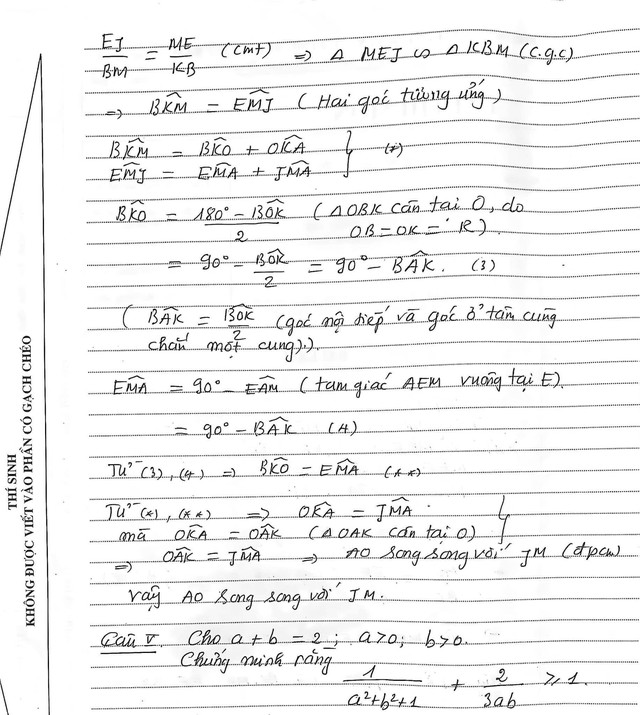 EJ/BM = ME/KB (cmt) => Δ MEJ ∽ Δ KBM (c.g.c)
=> BK̂M = EM̂J (Hai góc tương ứng)
BK̂M = BK̂O + OK̂A
EM̂J = EM̂A + JM̂A } (*)
BK̂O = (180° - BÔK)/2 (Δ OBK cân tại O, do
OB = OK = R)
= 90° - BÔK/2 = 90° - BÂK. (3)
( BÂK = BÔK/2 (góc nội tiếp và góc ở tâm cùng
chắn một cung)).
EM̂A = 90° - EÂM (tam giác AEM vuông tại E).
= 90° - BÂK (4)
Từ (3), (4) => BK̂O = EM̂A (**)
Từ (*), (**) => OK̂A = JM̂A
mà OK̂A = OÂK (Δ OAK cân tại O) }
=> OÂK = JM̂A => AO song song với JM (đpcm)
Vậy AO song song với JM.
Câu V Cho a + b = 2; a>0; b>0.
Chứng minh rằng 1/(a²+b²+1) + 2/(3ab) ⩾ 1.
THÍ SINH
KHÔNG ĐƯỢC VIẾT VÀO PHẦN CÓ GẠCH CHÉO